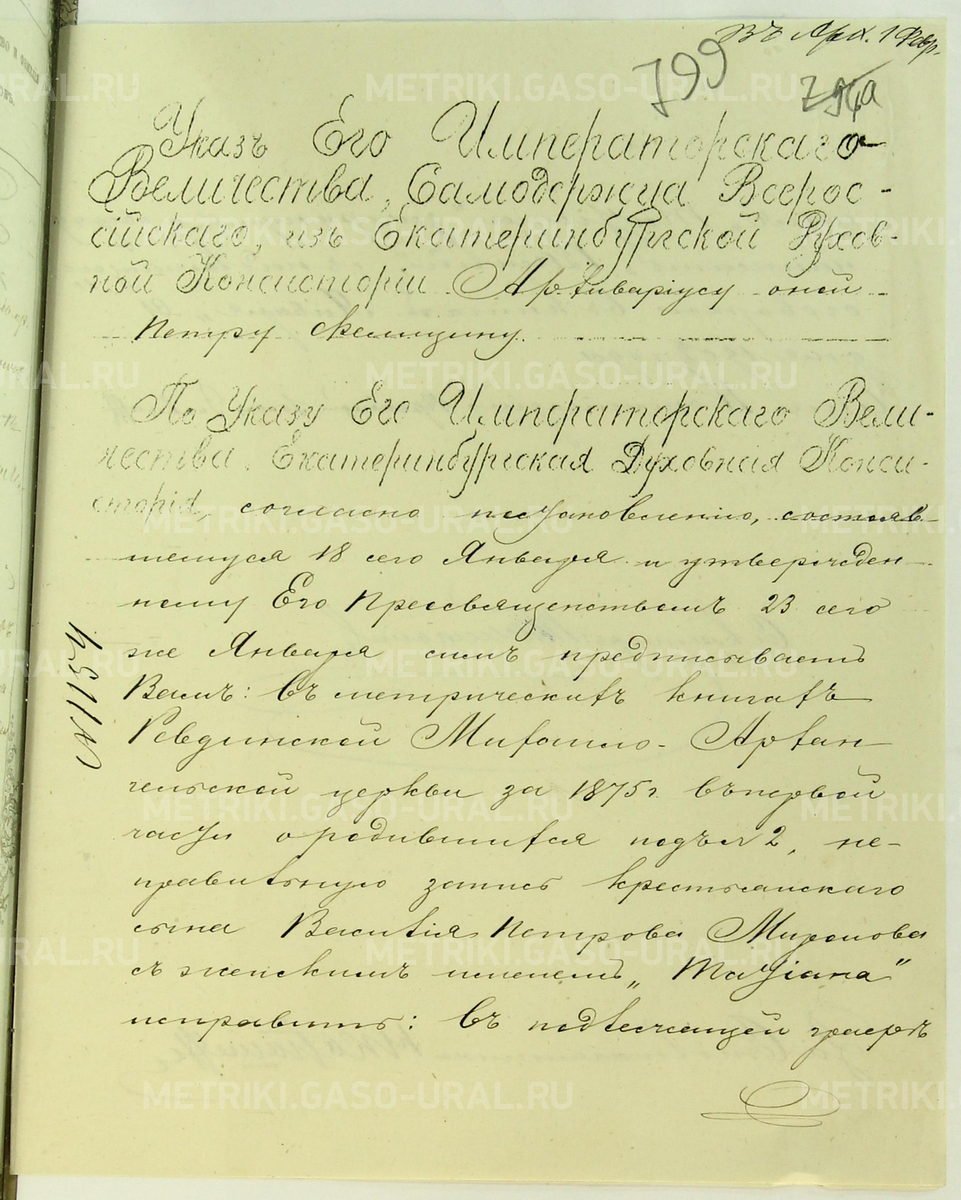 Въ Арх. 1 Февр.
799
794а
Указъ Его Императорскаго
Величества, Самодержца Всерос-
сійскаго, изъ Екатеринбургской Духов-
ной Консисторіи Архиваріусу оной
Петру
По Указу Его Императорскаго Вели-
чества, Екатеринбургская Духовная Конси-
сторія, согласно постановленію, состояв-
шемуся 18 сего Января и утвержден-
ному Его Преосвященствомъ 23 сего
же Января симъ предписываетъ
Вамъ: въ метрическихъ книгахъ
Ревдинской Михаило-Архан-
гельской церкви за 1875 г. въ первой
части о родившихся подъ № 2, не-
правильную запись крестьянскаго
сына Василія Петрова Миронова
съ женскимъ именемъ „Татіана"
исправить: въ подлежащей графѣ
№ 1154
METRIKI.GASO-URAL.RU